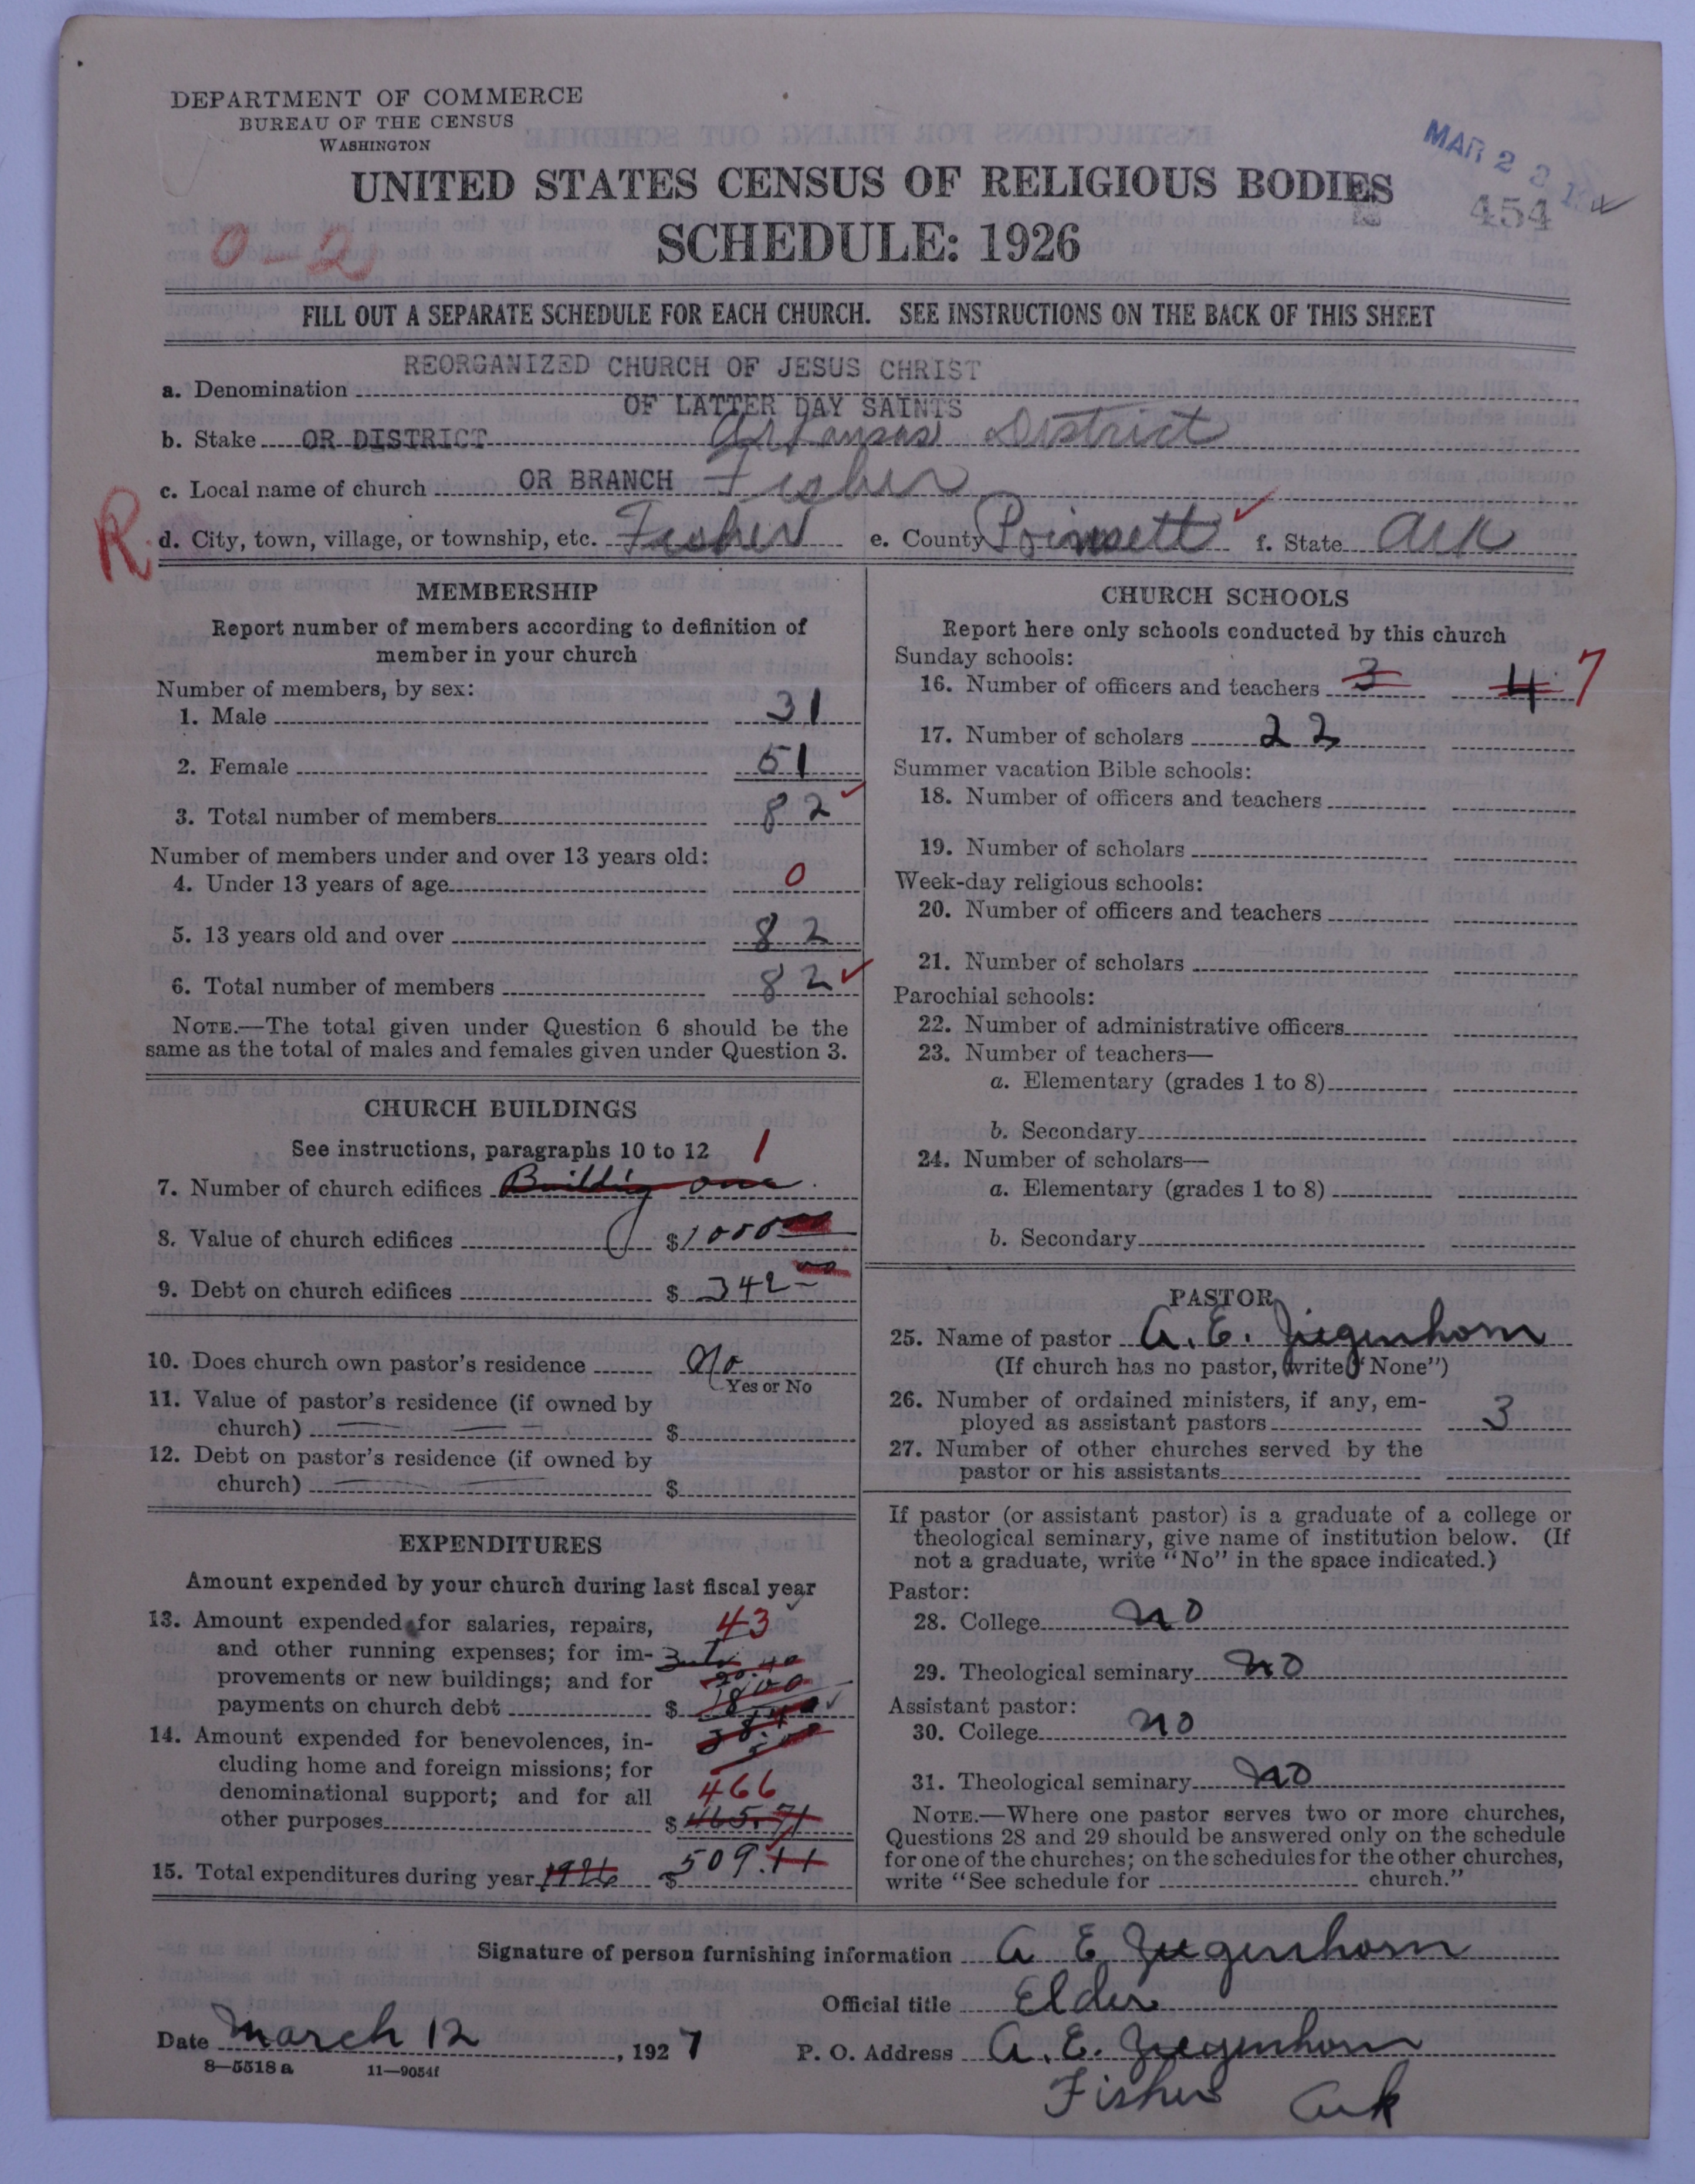 DEPARTMENT OF COMMERCE
BUREAU OF THE CENSUS
WASHINGTON
MAR 2 3
UNITED STATES CENSUS OF RELIGIOUS BODIES
454
0-2
SCHEDULE: 1926
FILL OUT A SEPARATE SCHEDULE FOR EACH CHURCH. SEE INSTRUCTIONS ON THE BACK OF THIS SHEET
REORGANIZED CHURCH OF JESUS CHRIST
a. Denomination
OF LATTER DAY SAINTS
b. Stake OR DISTRICT Arkansas District
c. Local name of church OR BRANCH Fisher
R
d. City, town, village, or township, etc. Fisher e. County Poinsett f. State Ark
MEMBERSHIP
Report number of members according to definition of
member in your church
Number of members, by sex:
1. Male 31
2. Female 51
3. Total number of members 82
Number of members under and over 13 years old:
4. Under 13 years of age 0
5. 13 years old and over 82
6. Total number of members 82
NOTE.—The total given under Question 6 should be the
same as the total of males and females given under Question 3.
CHURCH BUILDINGS
See instructions, paragraphs 10 to 12 1
7. Number of church edifices Building one
8. Value of church edifices $1000
9. Debt on church edifices $342
10. Does church own pastor's residence No
Yes or No
11. Value of pastor's residence (if owned by
church) $
12. Debt on pastor's residence (if owned by
church) $
EXPENDITURES
Amount expended by your church during last fiscal year
13. Amount expended for salaries, repairs, 43
and other running expenses; for im-
provements or new buildings; and for
payments on church debt $
14. Amount expended for benevolences, in-
cluding home and foreign missions; for
denominational support; and for all 466
other purposes $465.71
15. Total expenditures during year 1926 $509.11
CHURCH SCHOOLS
Report here only schools conducted by this church
Sunday schools:
16. Number of officers and teachers 3 4 7
17. Number of scholars 22
Summer vacation Bible schools:
18. Number of officers and teachers
19. Number of scholars
Week-day religious schools:
20. Number of officers and teachers
21. Number of scholars
Parochial schools:
22. Number of administrative officers
23. Number of teachers—
a. Elementary (grades 1 to 8)
b. Secondary
24. Number of scholars—
a. Elementary (grades 1 to 8)
b. Secondary
PASTOR
25. Name of pastor A. E. Ziegenhorn
(If church has no pastor, write "None")
26. Number of ordained ministers, if any, em-
ployed as assistant pastors 3
27. Number of other churches served by the
pastor or his assistants
If pastor (or assistant pastor) is a graduate of a college or
theological seminary, give name of institution below. (If
not a graduate, write "No" in the space indicated.)
Pastor:
28. College no
29. Theological seminary no
Assistant pastor:
30. College no
31. Theological seminary no
NOTE.—Where one pastor serves two or more churches,
Questions 28 and 29 should be answered only on the schedule
for one of the churches; on the schedules for the other churches,
write "See schedule for church."
Signature of person furnishing information A E Ziegenhorn
Official title Elder
Date March 12, 1927
P. O. Address A. E. Ziegenhorn
8—5518 a 11—9054f
Fisher Ark